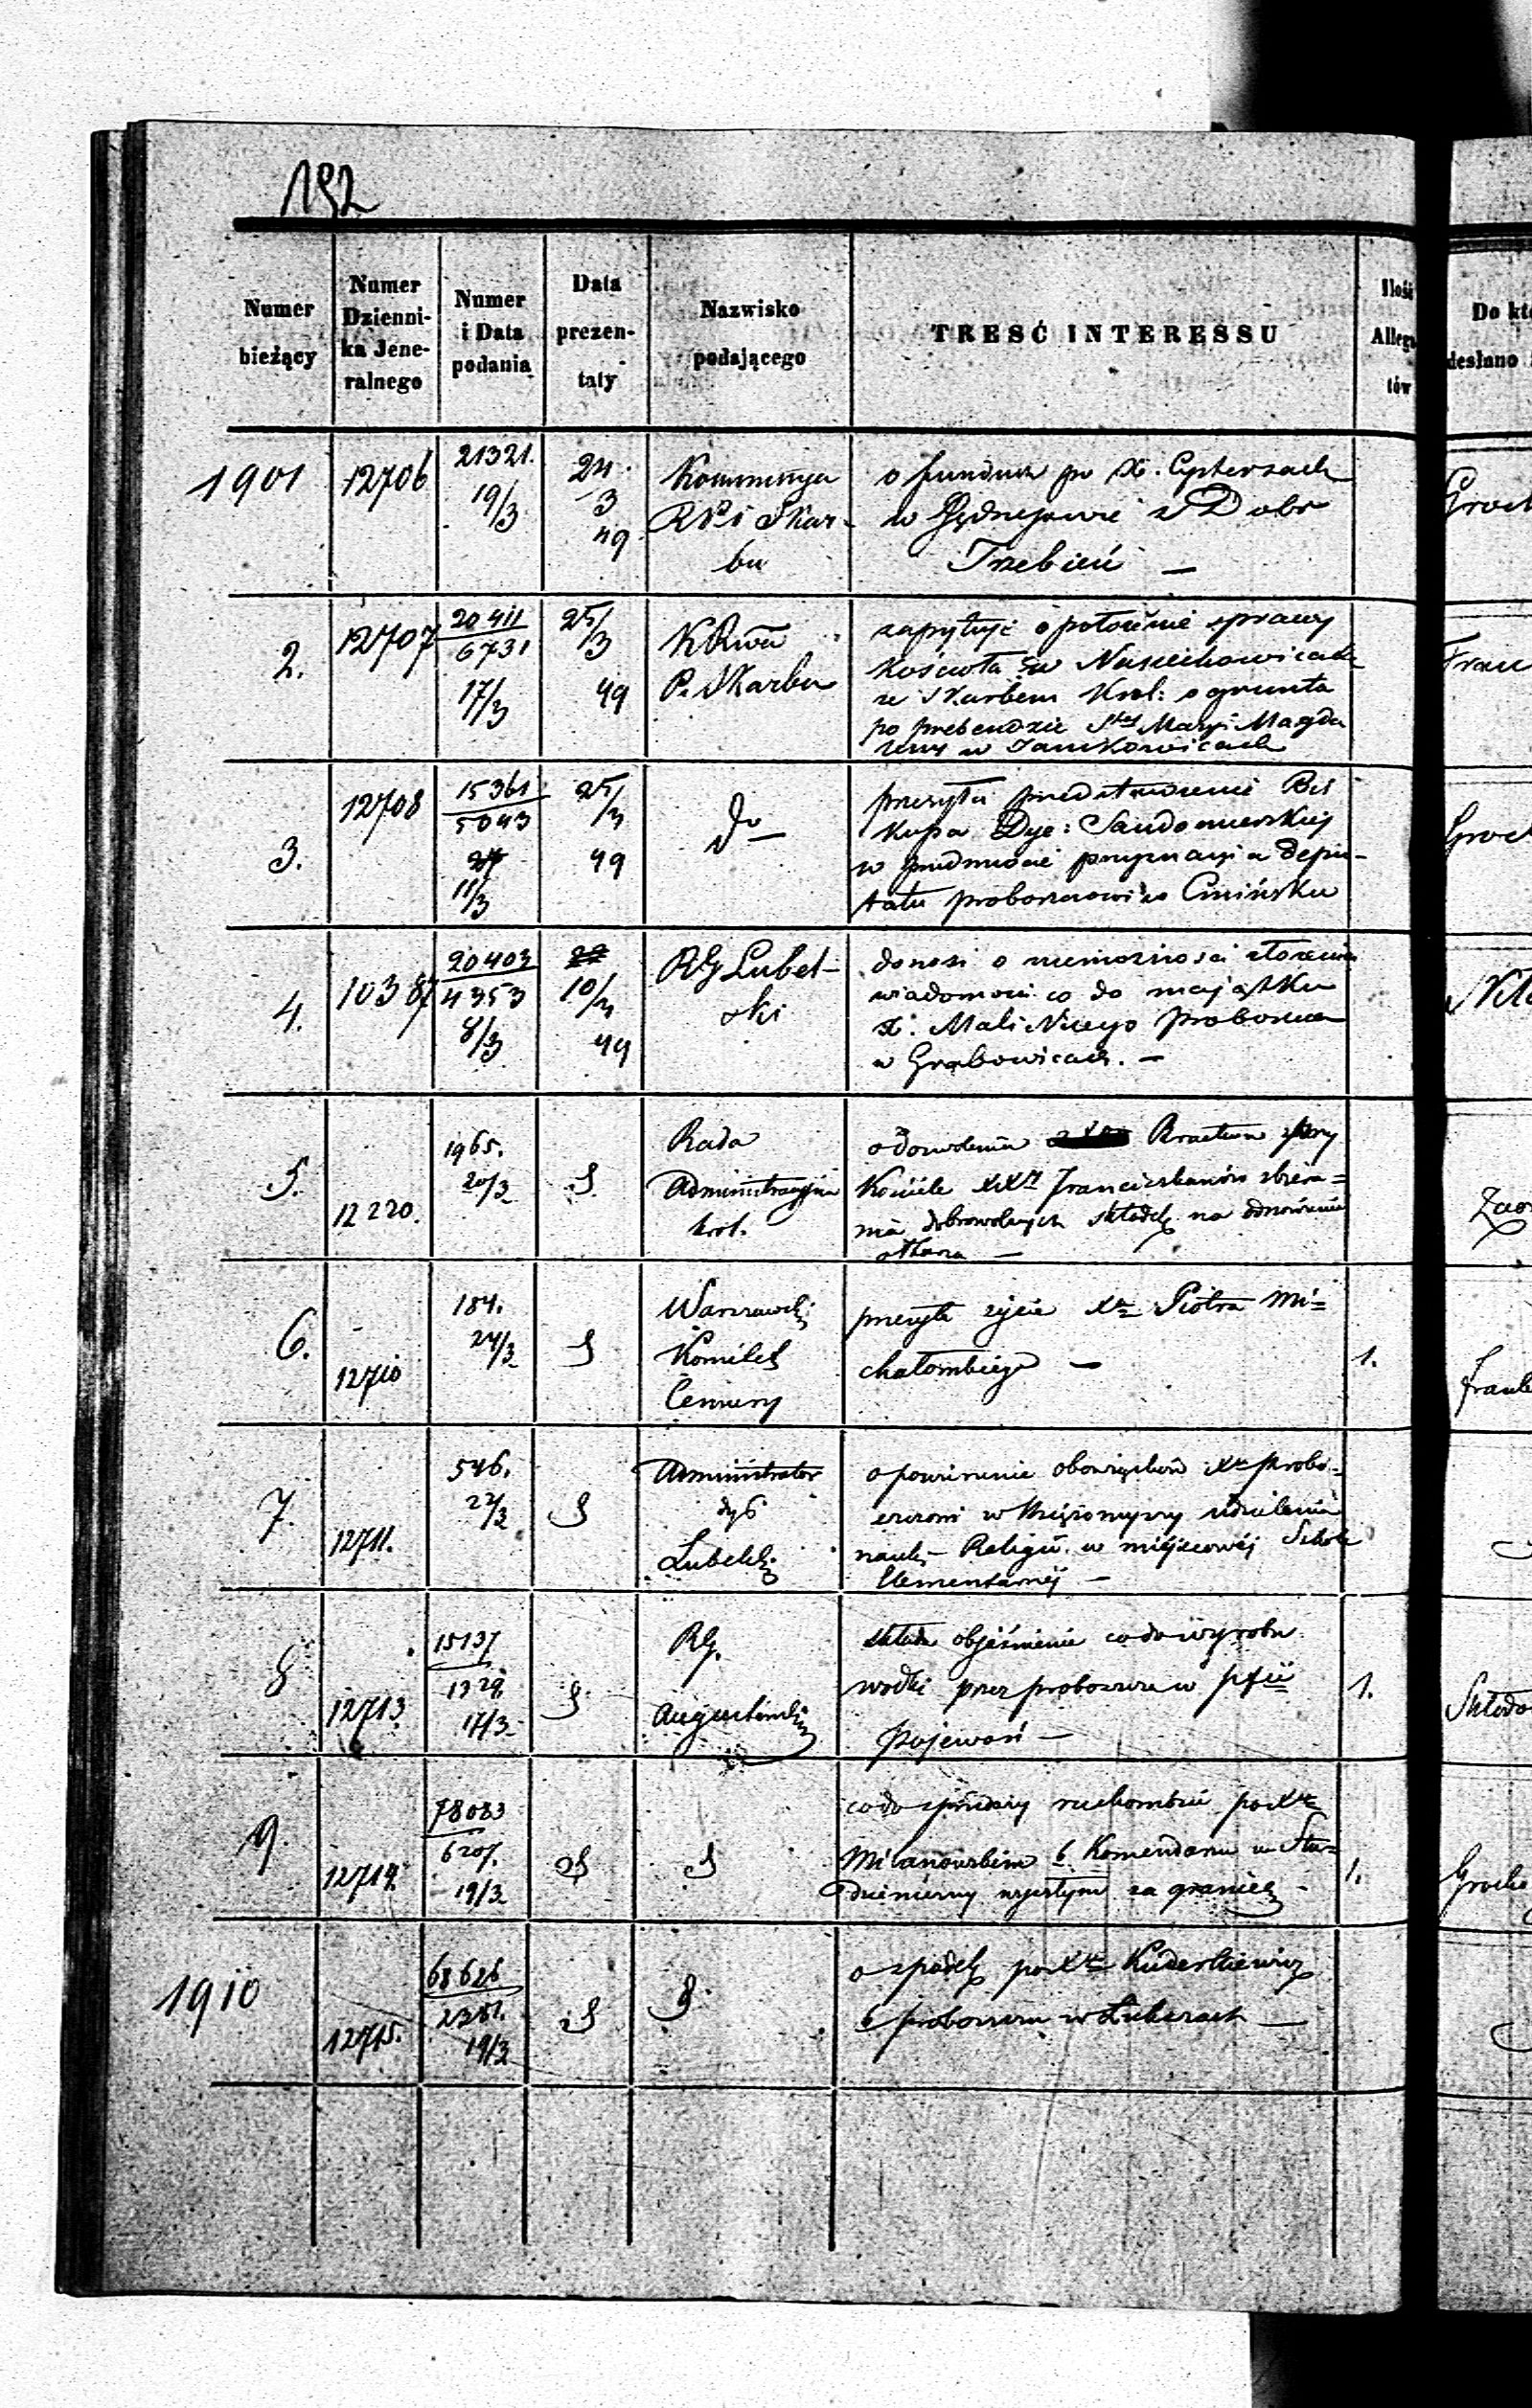 192
Numer bieżący
Numer Dzienni-ka Jene-ralnego
Numer i Data podania
Data prezen-taty
Nazwisko podającego
TREŚĆ INTERESSU
Ilość Allega tów
Do któ
desłano
1901 12706 21321. 19/3 24. 3 49
Kommissya
RPi Skar-
bu
o fundusz po X. Cystersach
w Jędrzejowie z Dobr
Trzebień —
Groch
2. 12707 20411 6731 17/3 25/3 49
KRwa
P. Skarbu
zapytuje o położenie sprawy
Kościoła w
ze Skarbem Król: o grunta
po prebendzie Stej Maryi Magda
leny w Jankowicach
Fran
3. 12708 15361 5043 11/3 25/3 49
do
przesyła przedstawienie Bis
kupa Dye: Sandomierskiej
w przedmiocie przyznania depu-
tatu proboszczowi w Cmińsku
Groch
4. 10387 20403 4353 8/3 10/3 49
RG Lubel-
ski
donosi o niemożności złożenia
wiadomości co do majątku
X. Malickiego proboszcza
w Grabowicach. —
5. 12220. 1965. 20/3
Rada
Administracyjna
król.
o dozwolenie Bractwu przy
Kościele XXy Franciszkanów zbiera=
nia dobrowolnych składek na odnowienie
ołtarza —
6. 12710 184. 24/3
Warszawski
Komitet
Cenzury
przesyła życie Xa Piotra Mi=
chałowskiego —
1.
7. 12711. 546. 22/3
Administrator
dyo
Lubelski
obowiązków Xa probo-
szczowi w Księżomierzy udzielania
nauki Religii w miejscowej Szkole
Elementarnej —
8 12713. 15137 1329. 17/3
RG.
Augustowski
składa objaśnienie co do wyrobu
wódki przez proboszcza w pfii
Pojewoń —
1.
Skłodo
9. 12714. 78083 6207. 19/3
co do sprzedaży ruchomości po Xe
Milanowskim b. Komendarzu w Stu-
dzieniczny zeszłym za granicę —
1.
Groch
1910 12715. 68626 2381. 19/3
o spadek po Xe Kuderkiewicz
b proboszczu w —